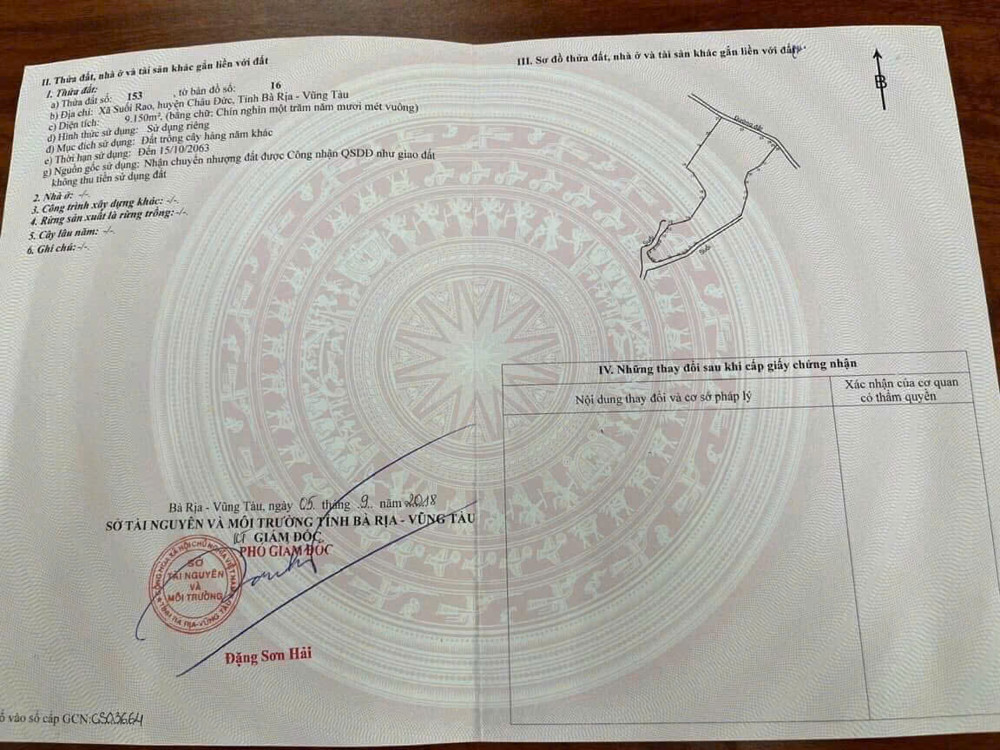 II. Thửa đất, nhà ở và tài sản khác gắn liền với đất
1. Thửa đất:
a) Thửa đất số: 153 , tờ bản đồ số: 16
b) Địa chỉ: Xã Suối Rao, huyện Châu Đức, Tỉnh Bà Rịa - Vũng Tàu
c) Diện tích: 9.150m², (bằng chữ: Chín nghìn một trăm năm mươi mét vuông)
d) Hình thức sử dụng: Sử dụng riêng
đ) Mục đích sử dụng: Đất trồng cây hàng năm khác
e) Thời hạn sử dụng: Đến 15/10/2063
g) Nguồn gốc sử dụng: Nhận chuyển nhượng đất được Công nhận QSDĐ như giao đất
không thu tiền sử dụng đất
2. Nhà ở: -/-
3. Công trình xây dựng khác: -/-
4. Rừng sản xuất là rừng trồng: -/-
5. Cây lâu năm: -/-
6. Ghi chú: -/-
Bà Rịa - Vũng Tàu, ngày 05 tháng 9 năm 2018
SỞ TÀI NGUYÊN VÀ MÔI TRƯỜNG TỈNH BÀ RỊA - VŨNG TÀU
KT GIÁM ĐỐC
PHÓ GIÁM ĐỐC
CỘNG HÒA XÃ HỘI CHỦ NGHĨA VIỆT NAM
SỞ
TÀI NGUYÊN
VÀ
MÔI TRƯỜNG
TỈNH BÀ RỊA - VŨNG TÀU
Đặng Sơn Hải
ố vào sổ cấp GCN: CS03664
III. Sơ đồ thửa đất, nhà ở và tài sản khác gắn liền với đất
B
Đường đất
Suối
Suối
IV. Những thay đổi sau khi cấp giấy chứng nhận
Nội dung thay đổi và cơ sở pháp lý
Xác nhận của cơ quan
có thẩm quyền